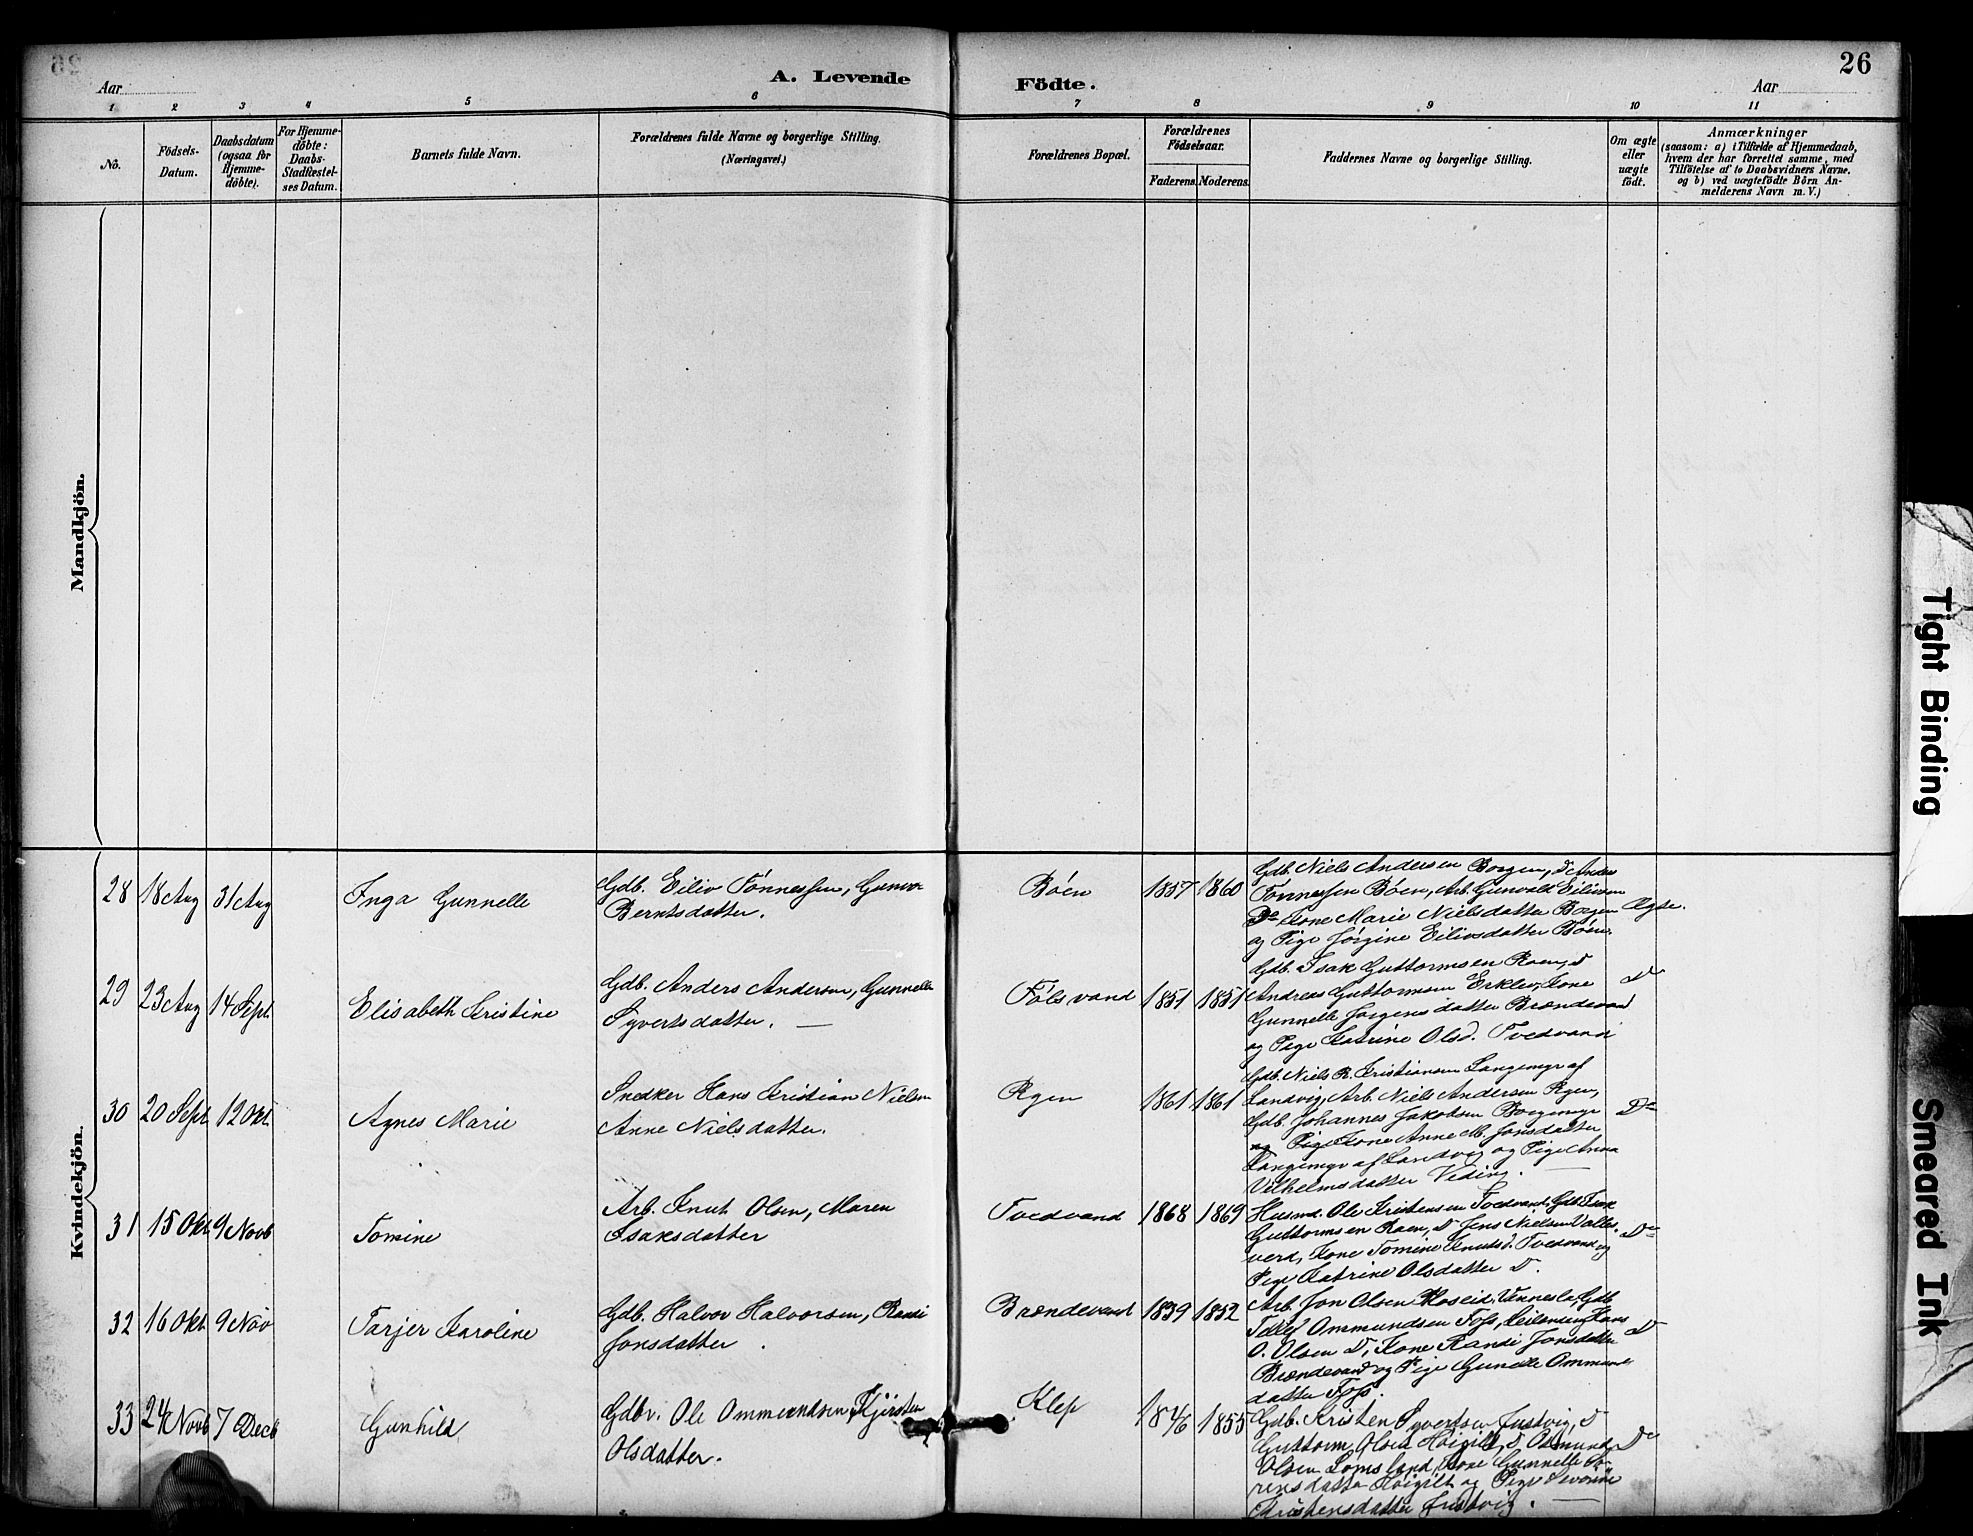 26
Aar
A. Levende
Födte.
Aar
1 2 3 4 5 6 7 8 9 10 11
Nô.
Födsels-
Datum.
Daabsdatum
(ogsaa for
Hjemme-
döbte).
For Hjemme-
döbte:
Daabs-
Stadfæstel-
ses Datum.
Barnets fulde Navn.
Forældrenes fulde Navne og borgerlige Stilling.
(Næringsvei.)
Forældrenes Bopæl.
Forældrenes
Födselsaar.
Faderens. Moderens.
Faddernes Navne og borgerlige Stilling.
Om ægte
eller
uægte
födt.
Anmærkninger
(saasom: a) i Tilfælde af Hjemmedaab,
hvem der har forrettet samme, med
Tilföielse af to Daabsvidners Navne.
og b) ved uægtefödte Börn An-
melderens Navn m. V.)
Mandkjön.
Kvindekjön.
28 18 Aug 31 Aug
Inga Gunnelle
Gdb. Eiliv Tønnessen, Gunvor
Berntsdatter.
Bøen
1857 1860
Gdb. Niels Andersen Boegen, Do Anders
Tønnessen Bøen, Arb. Gunvald Eilivsen
Do Kone Marie Nielsdatter Boegen
og Pige Jørgine Eilivsdatter Bøen.
Ægte.
29 23 Aug 14 Sept.
Elisabeth Kristine
Gdb. Anders Andersen, Gunnelle
Syvertsdatter.
Følsvand
1851 1851
Gdb. Isak Guttormsen Raen, Do
Andreas Guttormsen Erklev, Kone
Gunnelle Jørgensdatter Brændevand
og Pige Katrine Olsd. Tvedvand
Do
30 20 Sept 12 Okt.
Agnes Marie
Snedker Hans Kristian Nielsen
Anne Nielsdatter.
Rgen
1861 1861
Gdb. Niels R. Kristiansen Langemyr af
Landvig, Arb. Niels Andersen Rgen,
Gdb. Johannes Jakobsen Boegemyr
og Pige Kone Anne M. Jonsdatter
Langemyr af Landvig og Pige Anna
Vilhelmsdatter Veding.
Do
31 15 Okt 9 Novb
Tomine
Arb. Knut Olsen, Maren
Isaksdatter
Tvedvand
1868 1869
Husmd. Ole Kristensen Tvedvand, Gdb. Isak
Guttormsen Raen, Do Jens Nielsen Valles-
verd, Kone Tomine Knutsd. Tvedvand og
Pige Katrine Olsdatter Do.
Do
32 16 Okt 9 Nov
Tarjer Karoline
Gdb. Halvor Halvorsen, Randi
Jonsdatter
Brændevand
1839 1852
Arb. Jon Olsen Roseid, Vennesla, Gdb.
Tellef Ommundsen Foss, Hans
O. Olsen Do, Kone Randi Jonsdatter
Brændevand og Pige Gunelle Ommunds
datter Foss.
Do
33 24 Novb 7 Decb
Gunhild
Gdbr. Ole Ommundsen, Kjersten
Olsdatter.
Klep
1846 1855
Gdb. Kristen Syvertsen Justvig, Do
Guttorm Olsen Høigilt, Do Osmund
Olsen Lømsland, Kone Gunnelle Sø-
rensdatter Høigilt og Pige Severine
Kristensdatter Justvig.
Do
Tight Binding
Smeared Ink